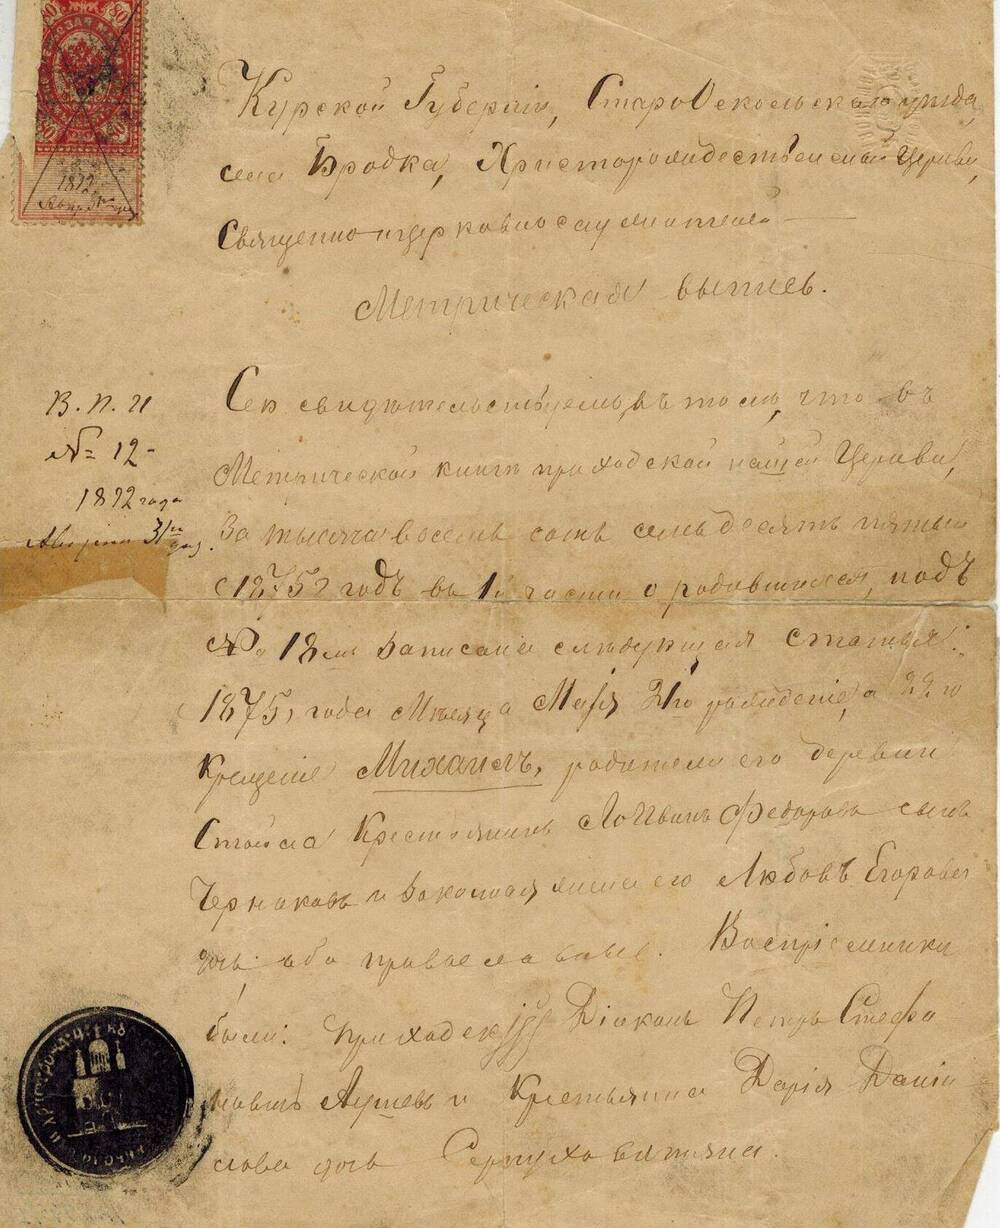 80
80
1892
Курской Губерніи, СтароОскольскаго уезда,
села Бродка, Христорождественской Церкви,
Священноцерковнослужителей
Метрическая выпись.
В. П. 21
№ 12 -
1892 года
31го
Сею свидѣтельствуемъ, въ томъ, что въ
Метрической книгѣ приходской нашей Церкви,
За тысяча восемь сотъ семьдесятъ пятый
(1875) годъ въ 1й части о родившихся, подъ
№ 18мъ записана слѣдующая статья:
1875, года Мѣсяца Мая 21го рожденіе, а 22го
Крещеніе Михаилъ, родители его деревни
Крестьянинъ Логвинъ Федоровъ сынъ
Чернаковъ и законная жена его Любовъ Егорова
дочь: оба православные. Воспріемники
были: приходск Діаконъ Петръ Стефа
новичъ и Крестьянка Дарія Дани
лова дочь